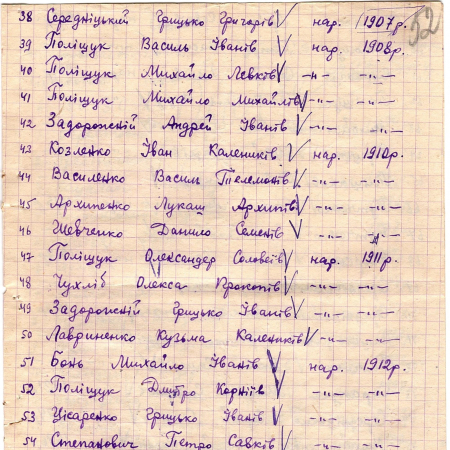 52
38 Середніцький Грицько Григорів V нар. 1907 р.
39 Поліщук Василь Іванів V нар. 1908 р.
40 Поліщук Михайло Левків V -"- -"-
41 Поліщук Михайло Михайлів V -"- -"-
42 Задорожній Андрей Іванів V -"- -"-
43 Козленко Іван Калеників V нар. 1910 р.
44 Василенко Василь Пилемонів V -"- -"-
45 Архипенко Лукаш Архипів V -"- -"-
46 Шевченко Данило Семенів V -"- -"-
47 Поліщук Олександер Соловеїв V нар. 1911 р.
48 Чухліб Олекса Прокопів V -"- -"-
49 Задорожній Грицько Іванів V -"- -"-
50 Лавриненко Кузьма Калеників V -"- -"-
51 Бонь Михайло Іванів V нар. 1912 р.
52 Поліщук Дмитро Корніїв V -"- -"-
53 Цісаренко Грицько Іванів V -"- -"-
54 Степанович Петро Савків V -"- -"-